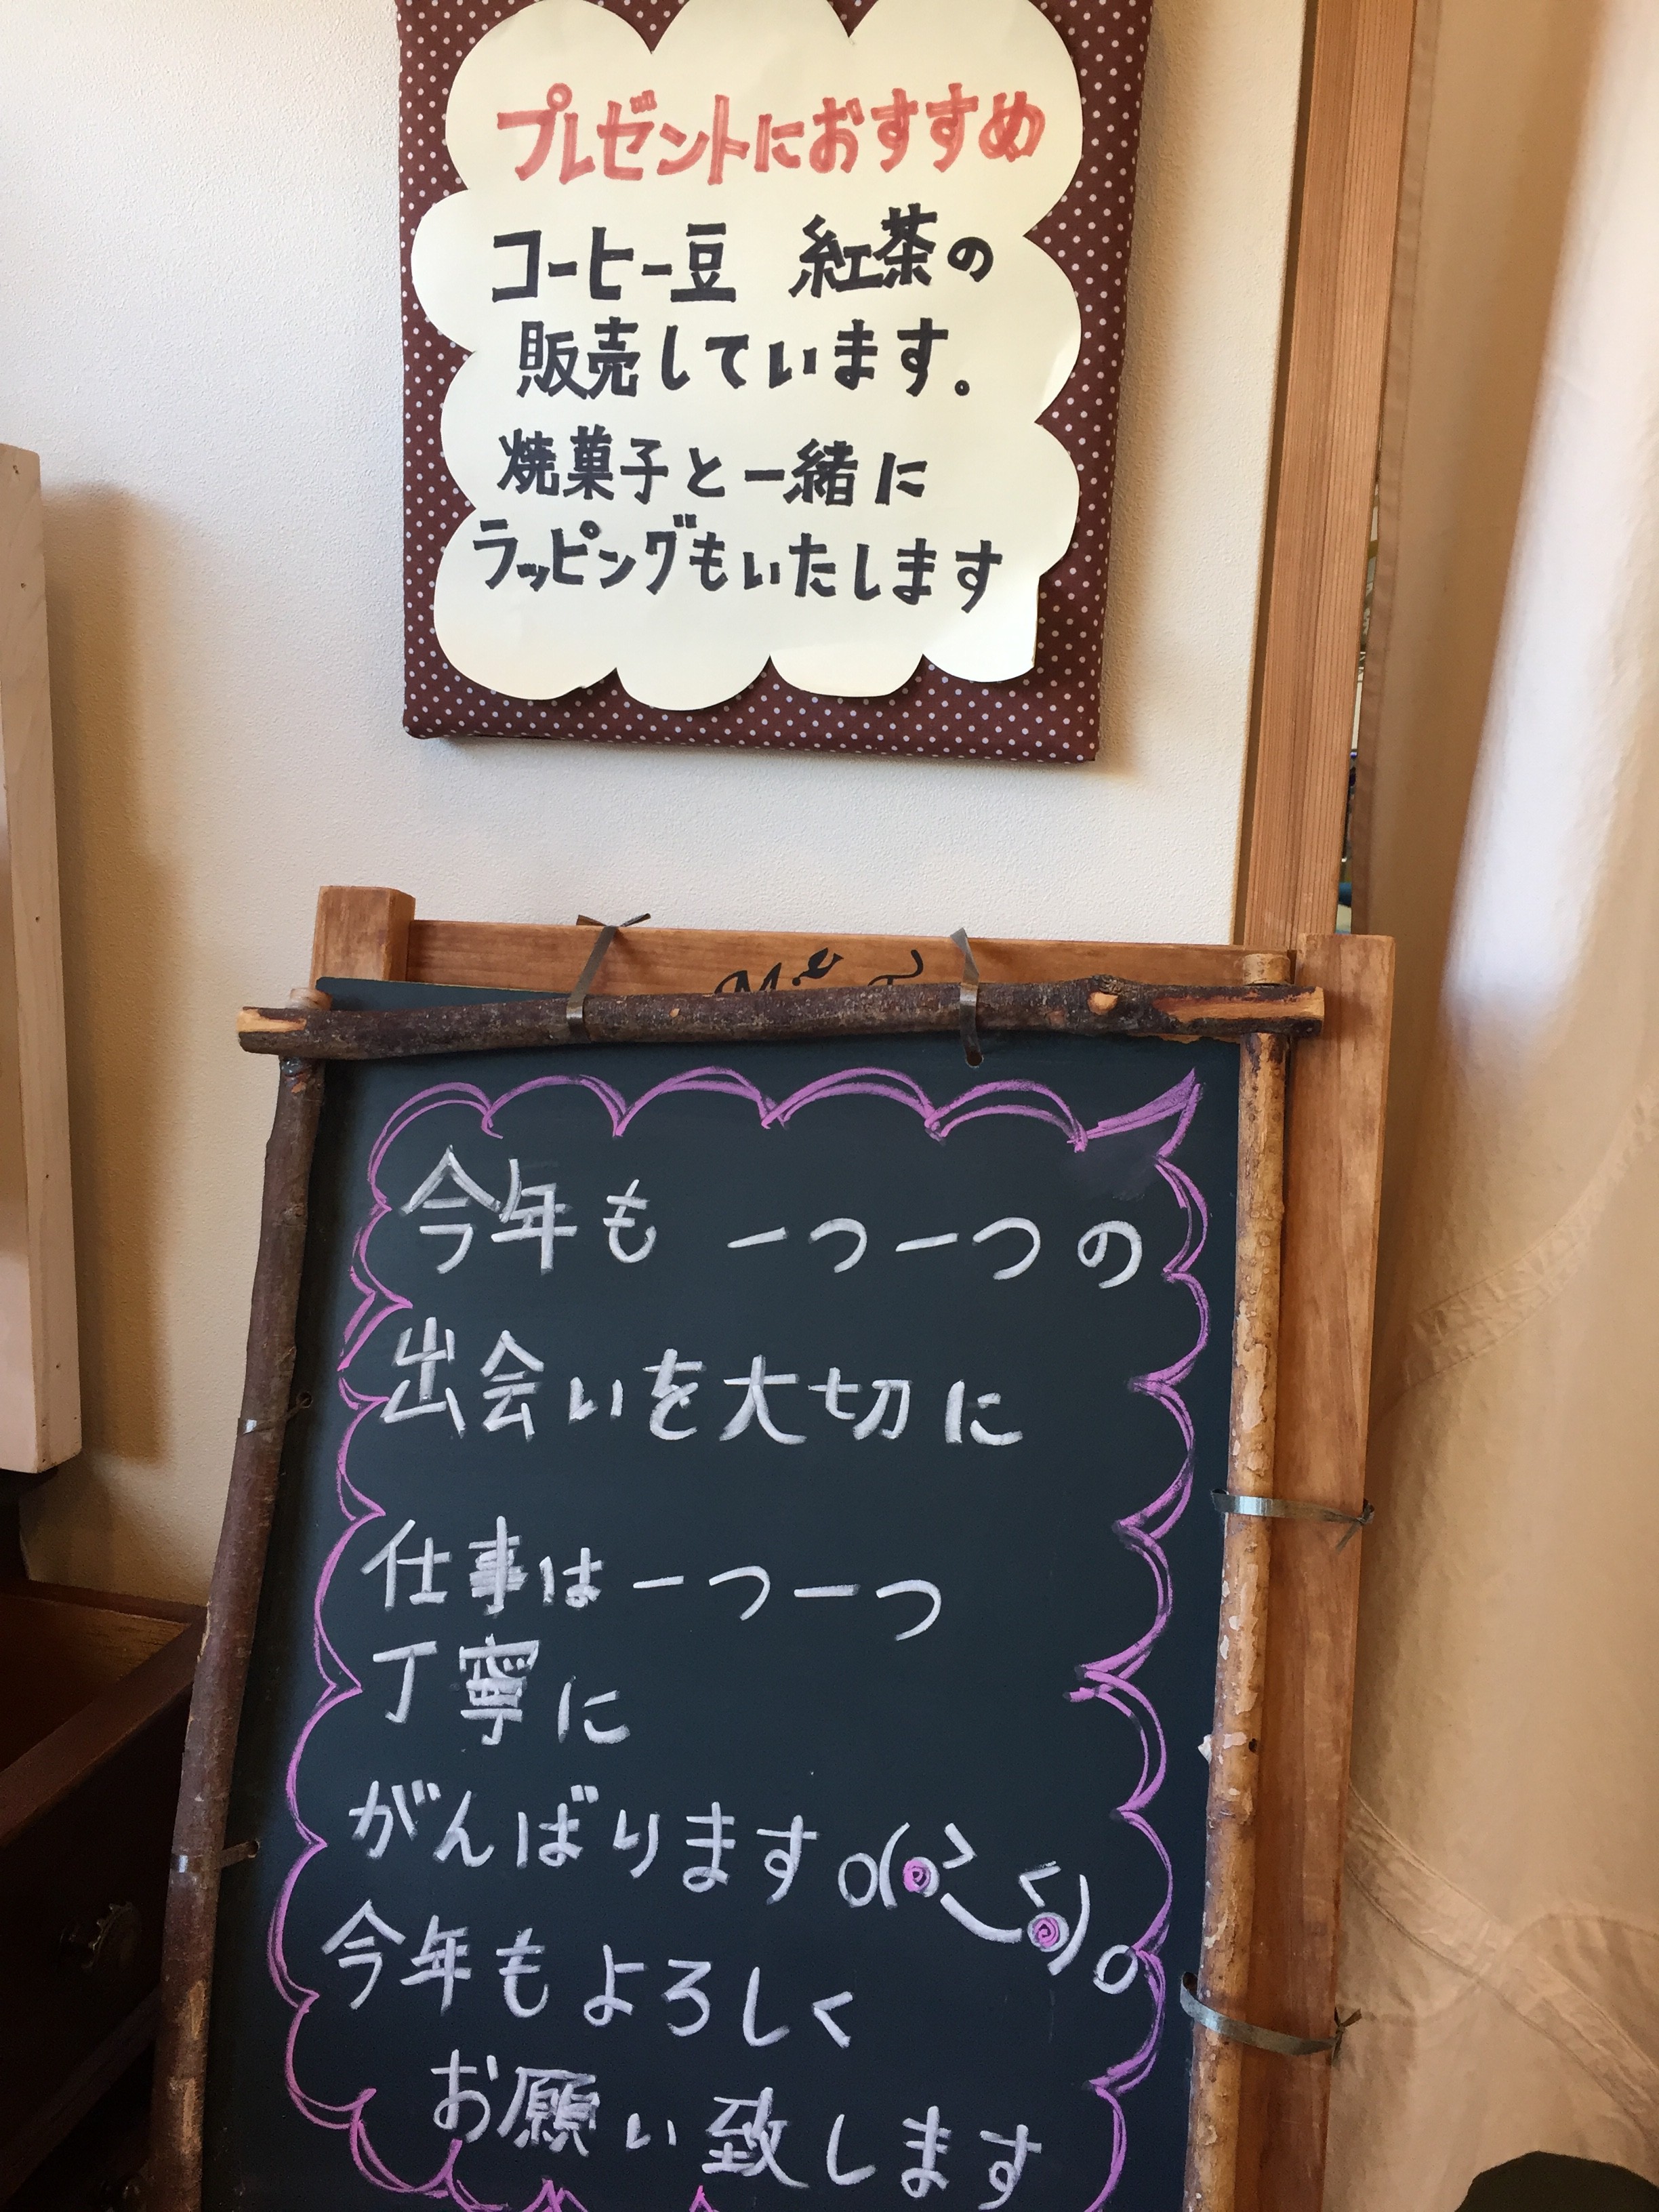 プレゼントにおすすめ
コーヒー豆　紅茶の
販売しています。
焼菓子と一緒に
ラッピングもいたします
今年も 一つ一つの
出会いを大切に
仕事は一つ一つ
丁寧に
がんばります
今年もよろしく
お願い致します